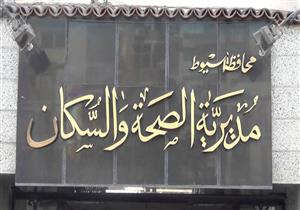 محافظة أسيوط
مُديريَّة الصحة والسُكان